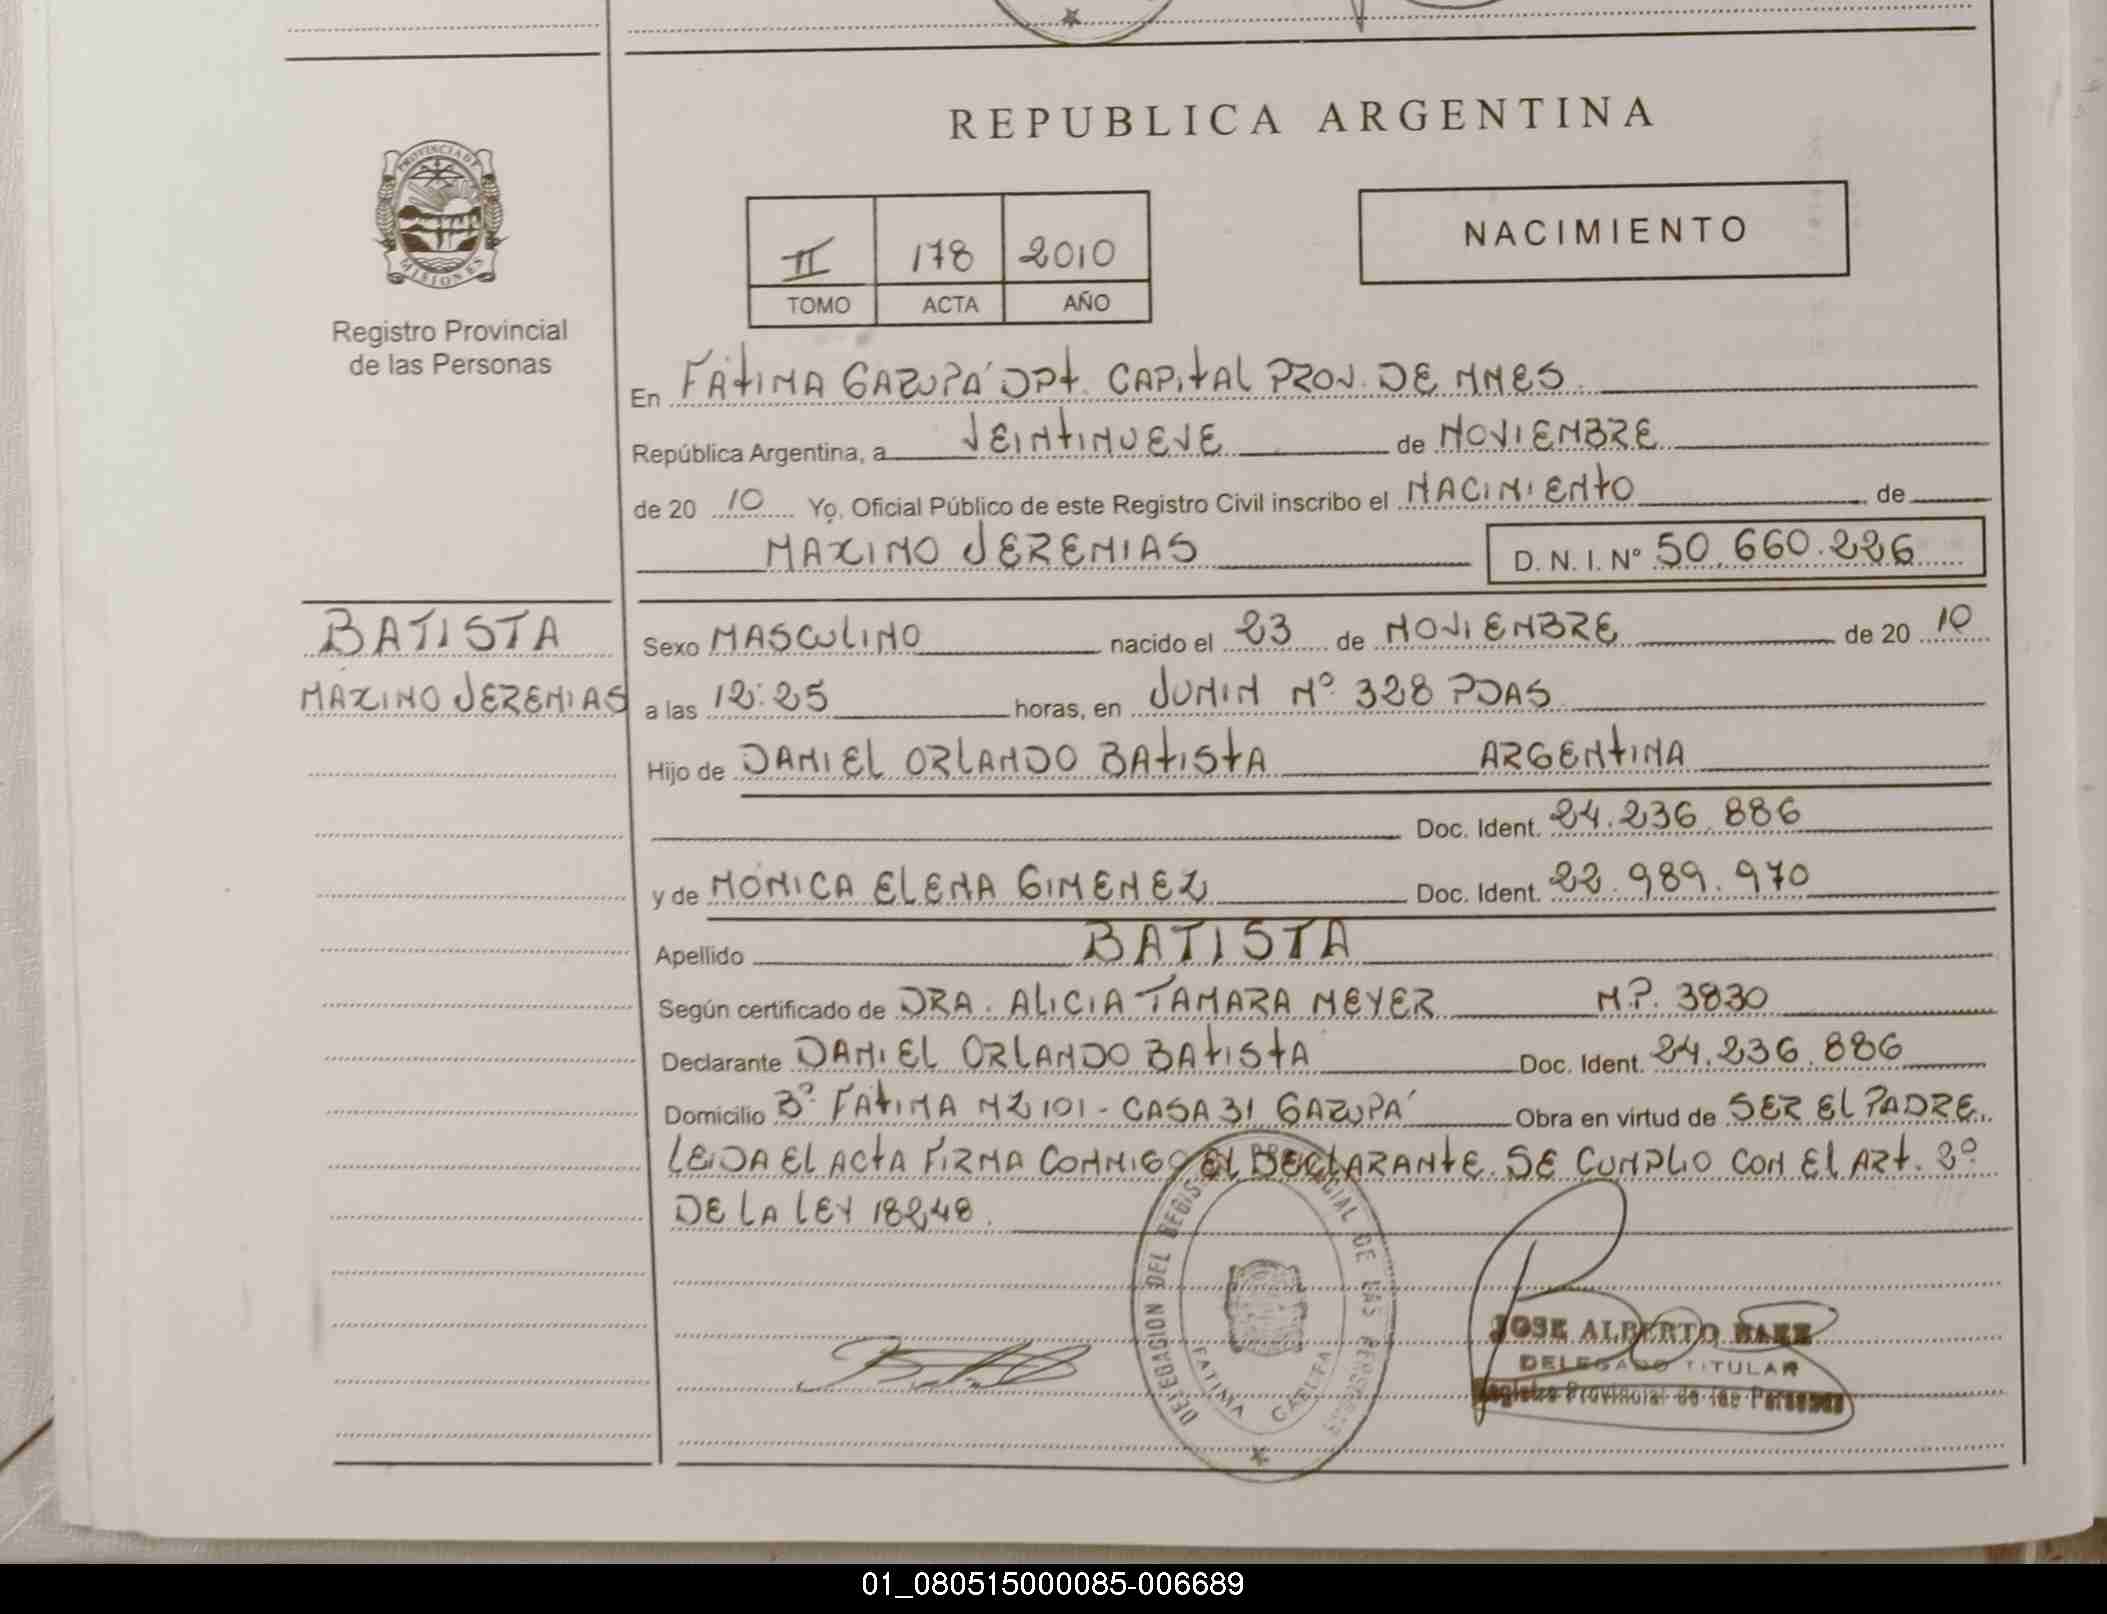 REPUBLICA ARGENTINA
PROVINCIA DE
MISIONES
Registro Provincial
de las Personas
II 178 2010
TOMO ACTA AÑO
NACIMIENTO
En FATIMA GARUPA' DPT. CAPITAL PROV. DE MNES.
República Argentina, a VEINTINUEVE de NOVIEMBRE
de 20 10 Yo, Oficial Público de este Registro Civil inscribo el NACIMIENTO de
MAXIMO JEREMIAS D. N. I. Nº 50.660.226
BATISTA
MAXIMO JEREMIAS
Sexo MASCULINO nacido el 23 de NOVIEMBRE de 20 10
a las 12:25 horas, en JUNIN Nº 328 PDAS
Hijo de DANIEL ORLANDO BATISTA ARGENTINA
Doc. Ident. 24.236.886
y de MONICA ELENA GIMENEZ Doc. Ident. 22.989.970
Apellido BATISTA
Según certificado de DRA. ALICIA TAMARA MEYER M.P. 3830
Declarante DANIEL ORLANDO BATISTA Doc. Ident. 24.236.886
Domicilio Bº FATIMA MZ 101 - CASA 31 GARUPA' Obra en virtud de SER EL PADRE.
LEIDA EL ACTA FIRMA CONMIGO EL DECLARANTE. SE CUMPLIO CON EL ART. 2º
DE LA LEY 18248.
DELEGACION DEL REGIS. PROVINCIAL DE LAS PERSONAS
FATIMA GARUPA
JOSE ALBERTO BAEZ
DELEGADO TITULAR
Registro Provincial de las Personas
01_080515000085-006689